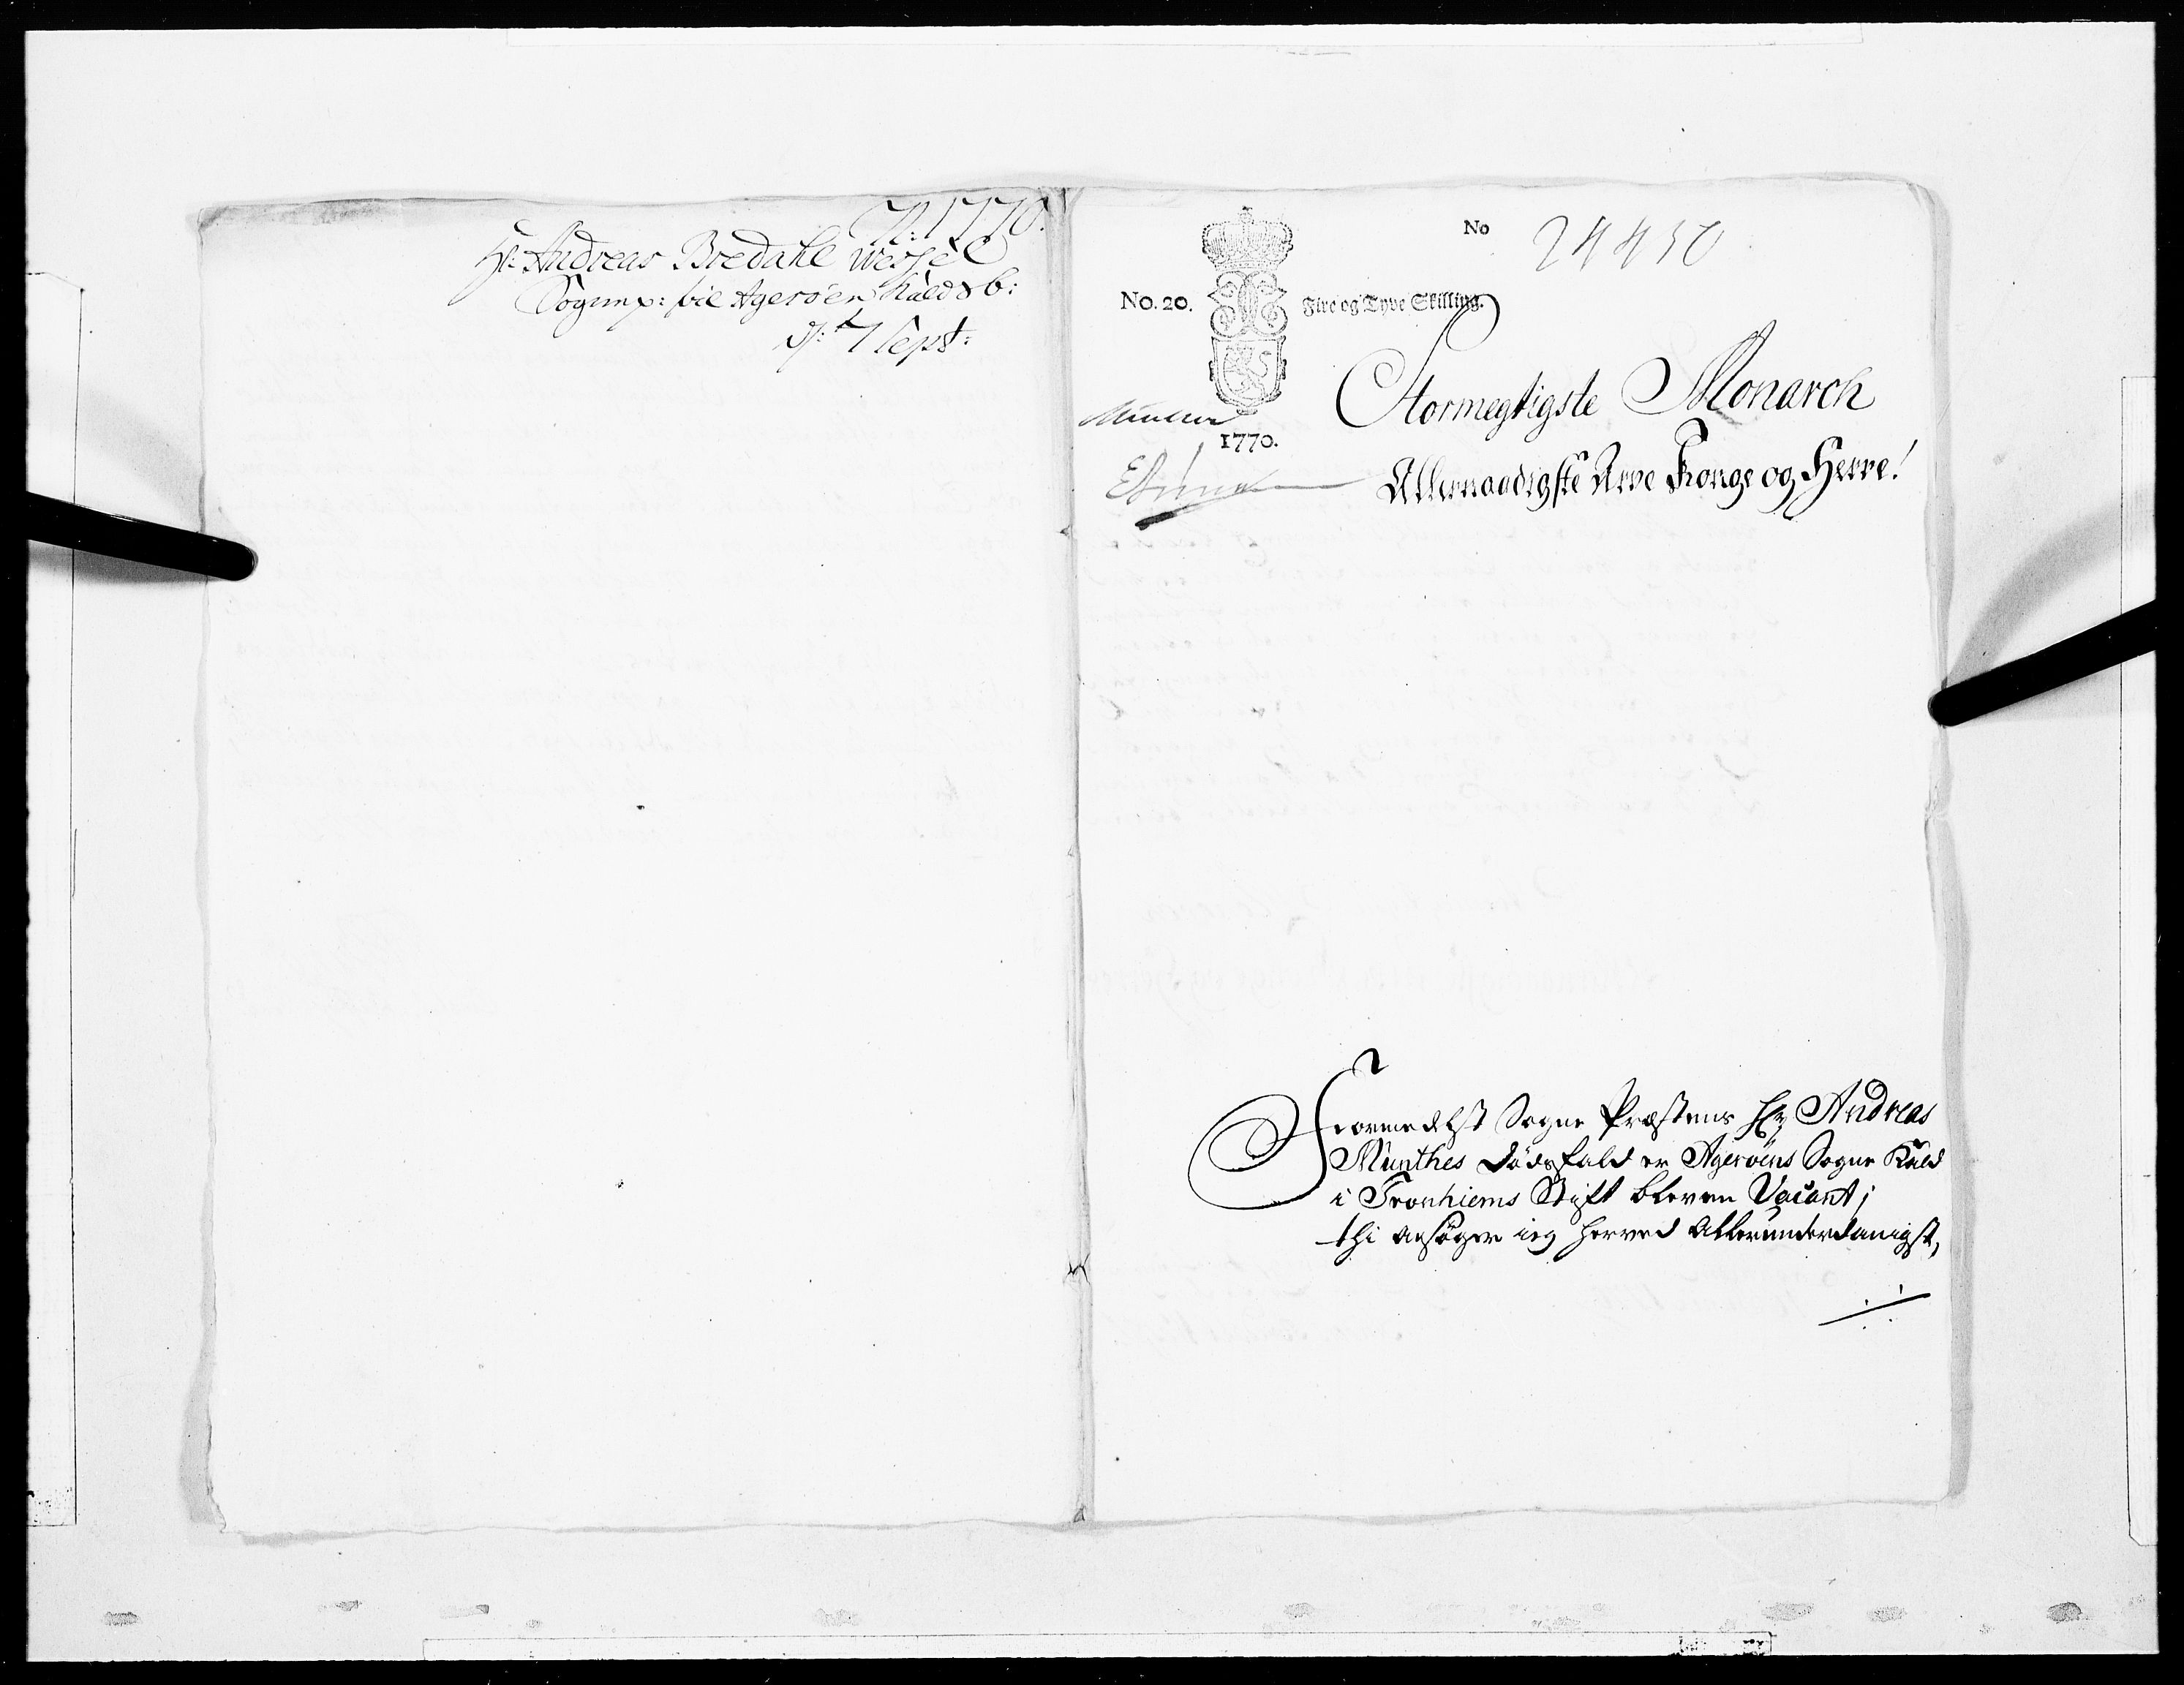 1770.
Hr: Andreas Bredahl Wessel
Sognep: til Agerøen Kalds b:
d: 7 Sept:
No 24450
No. 20. Fire og Tyve Skilling.
1770.
Stormegtigste Monarch
Allernaadigste Arve Konge og Herre!
Formedelst Sogne Præstens Hr Andreas
Munthes dødsfald er Agerøens Sogne Kald
i Tronhiems Stift bleven Vacant;
thi ansøger ieg herved Allerunderdanigst,